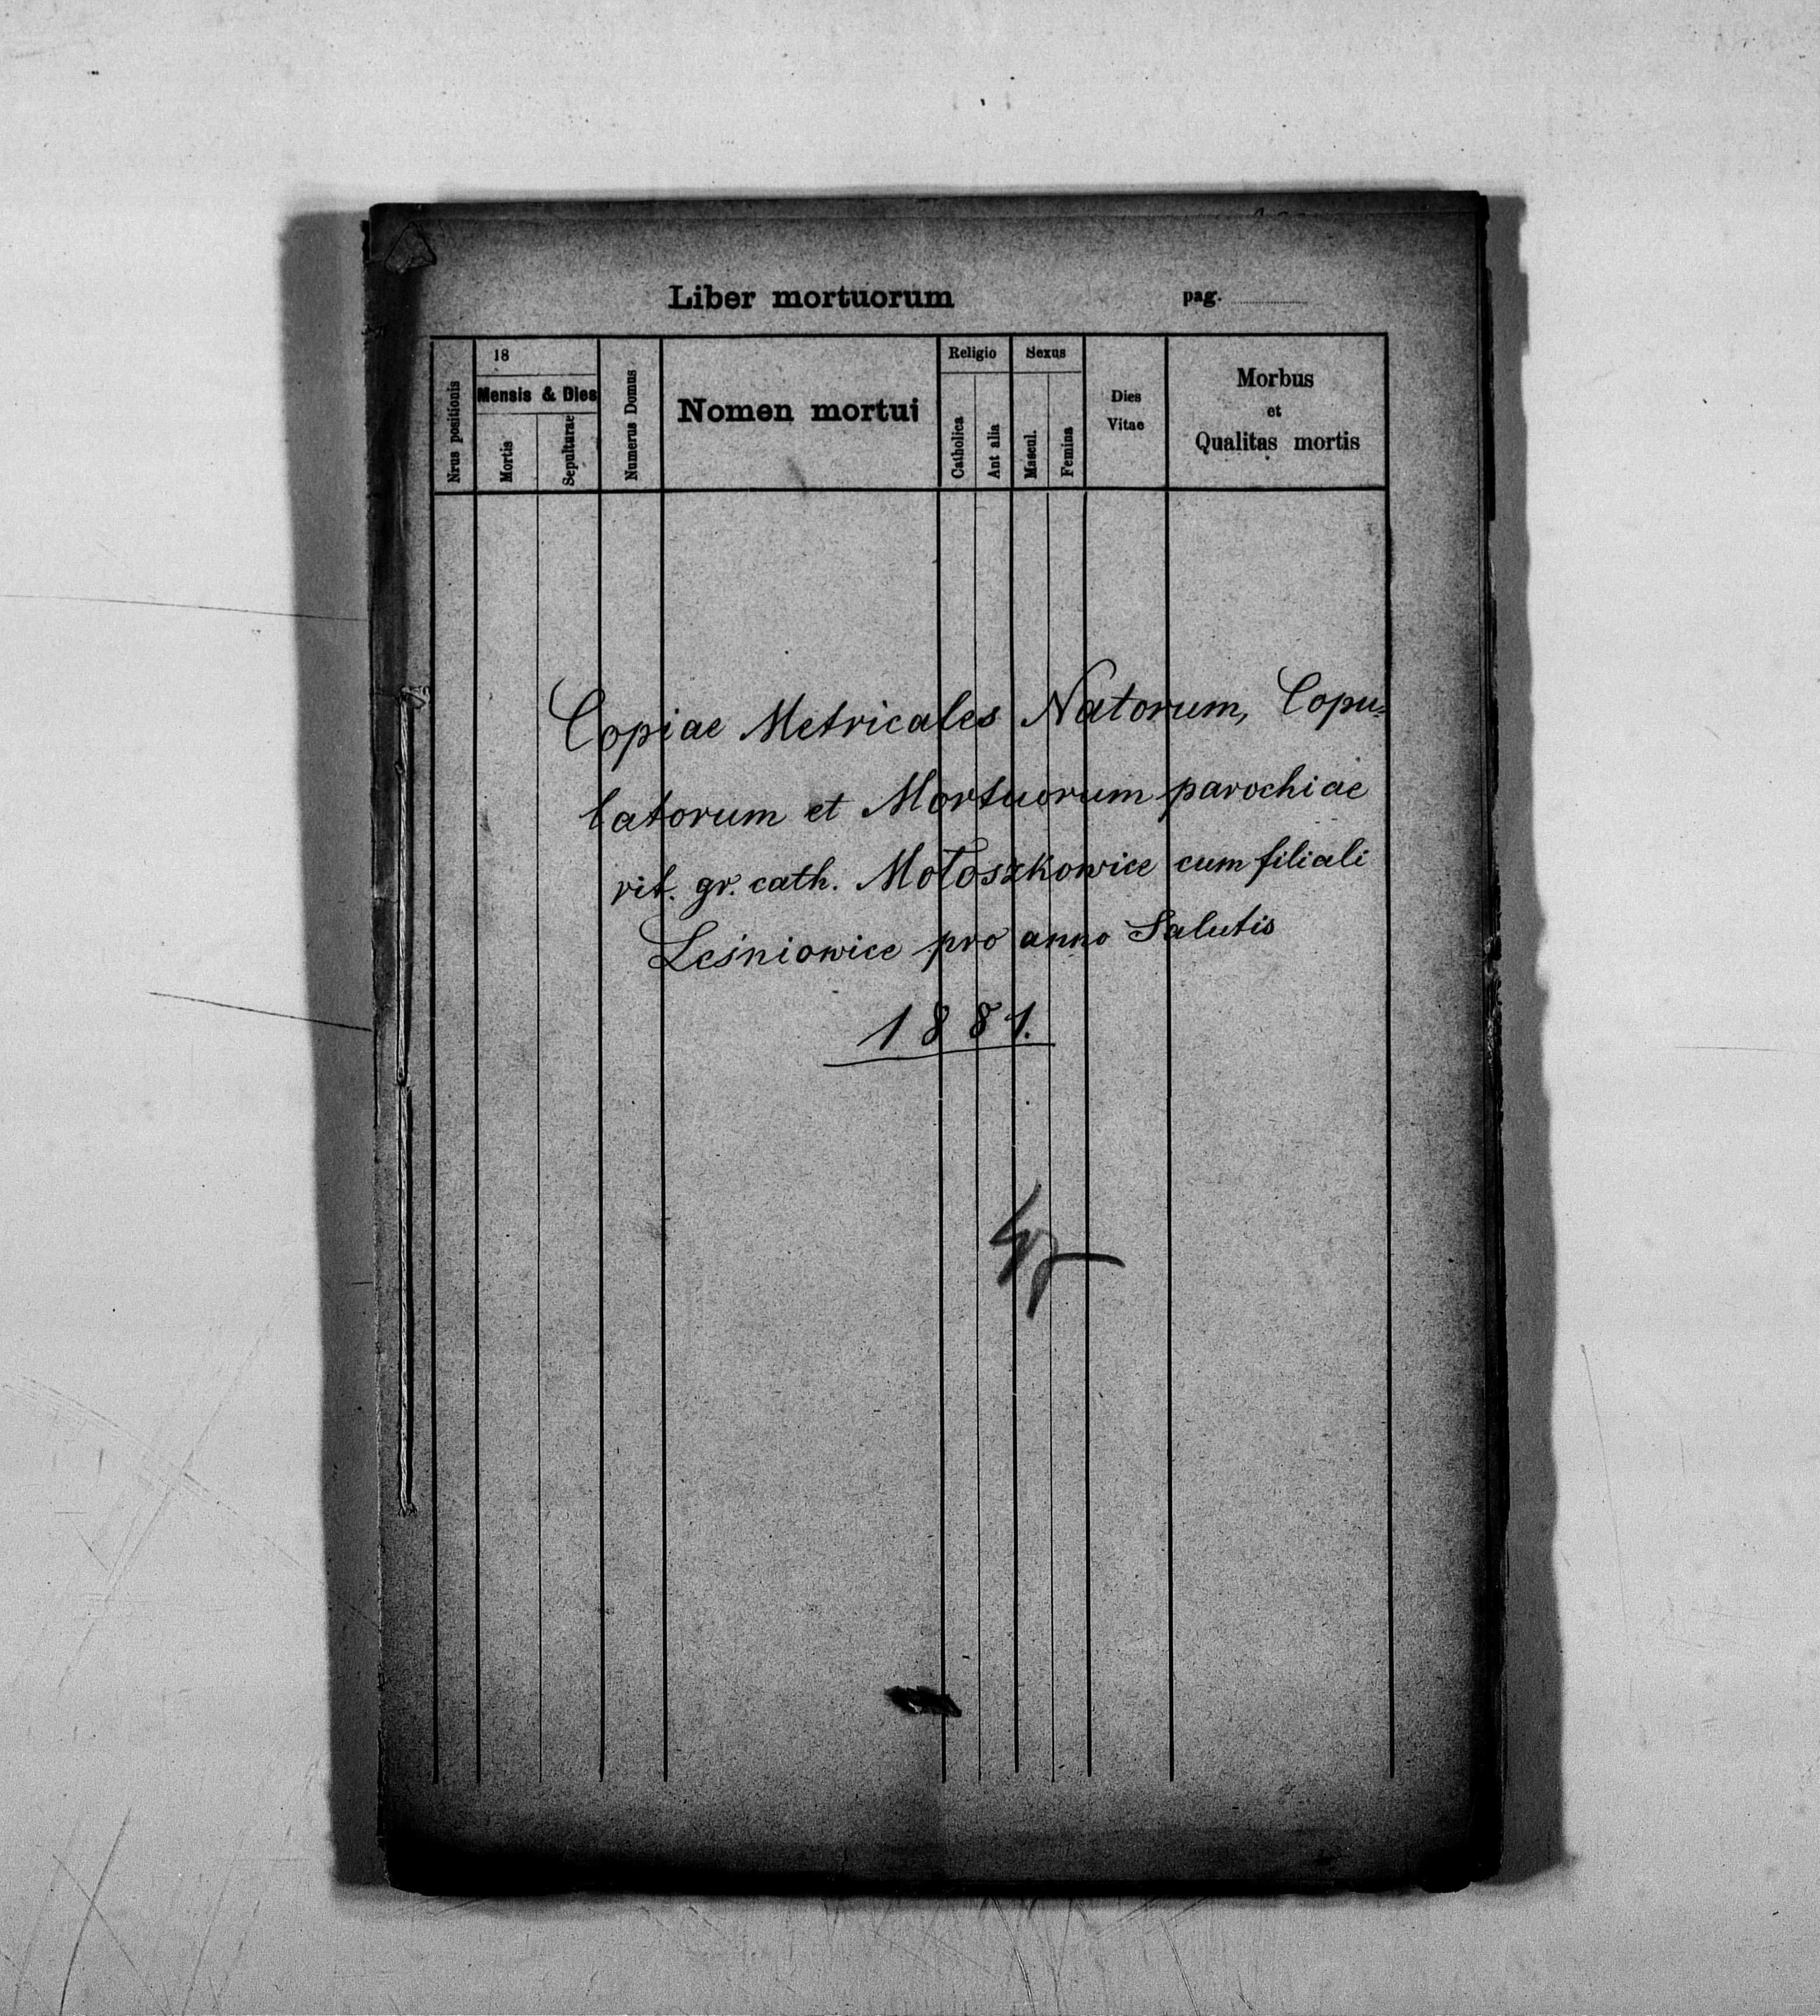 Liber mortuorum pag.
Nrus positionis
18
Mensis & Dies
Mortis
Sepulturae
Numerus Domus
Nomen mortui
Religio
Catholica
Aut alia
Sexus
Mascul.
Femina
Dies
Vitae
Morbus
et
Qualitas mortis
Copiae Metricales Natorum, Copu=
latorum et Mortuorum parochiae
rit. gr. cath. Mołoszkowice cum filiali
Leśniowice pro anno Salutis
1881.